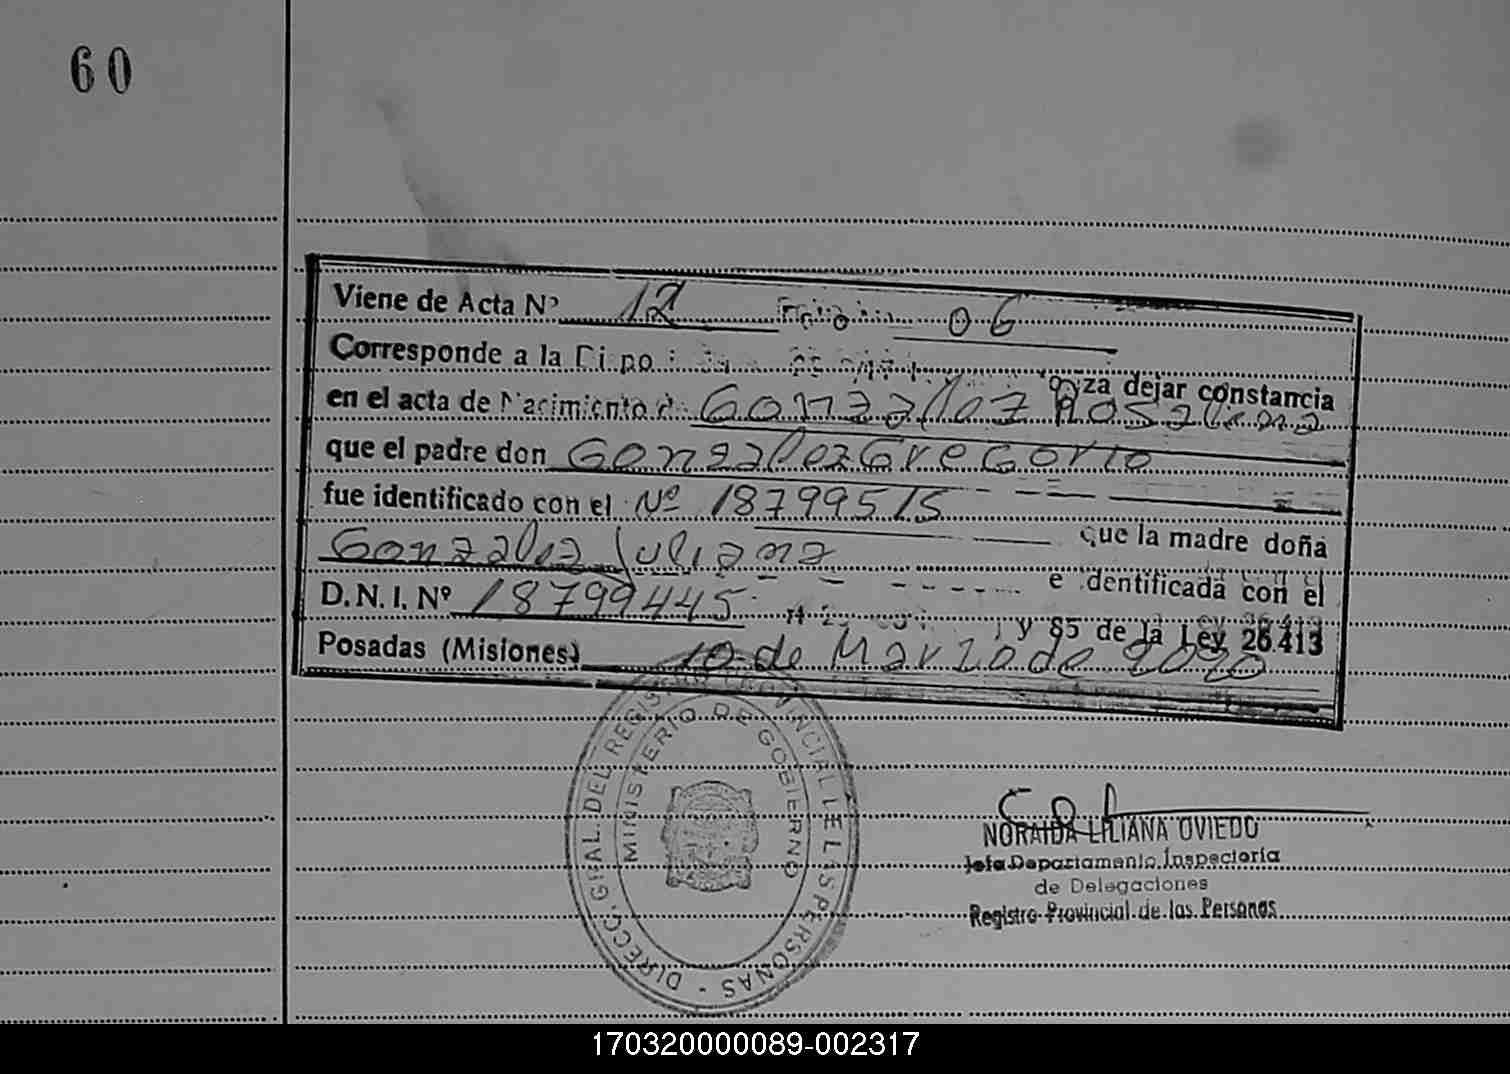 60
Viene de Acta Nº 12 Folio 06
Corresponde a la Dispo
za dejar constancia
en el acta de Nacimiento de Gonzalez Rosaliana
que el padre don Gonzalez Gregorio
fue identificado con el Nº 18799515
que la madre doña
Gonzalez Juliana
e identificada con el
D.N.I. Nº 18799445
y 85 de la Ley 26.413
Posadas (Misiones) 10 de Marzo de 2020
DIRECC. GRAL. DEL REGISTRO PROVINCIAL DE LAS PERSONAS -
MINISTERIO DE GOBIERNO
NORAIDA LILIANA OVIEDO
Jefa Departamento Inspectoria
de Delegaciones
Registro Provincial de las Personas
170320000089-002317